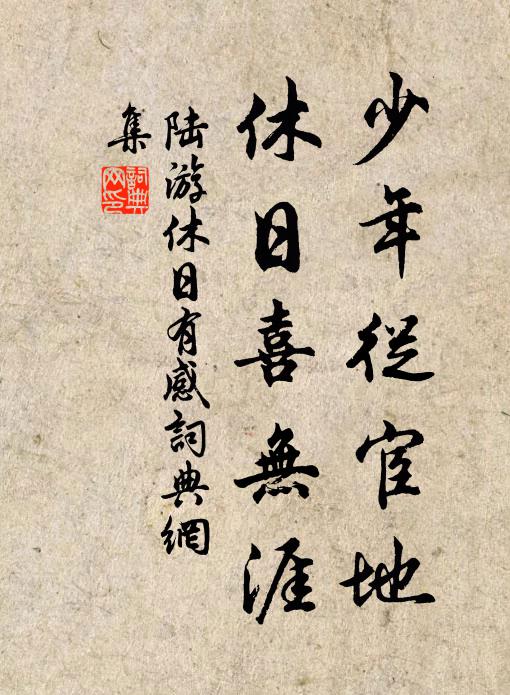 少年從宦地
休日喜無涯
陆游休日有感詞典網
集
詞典
网印